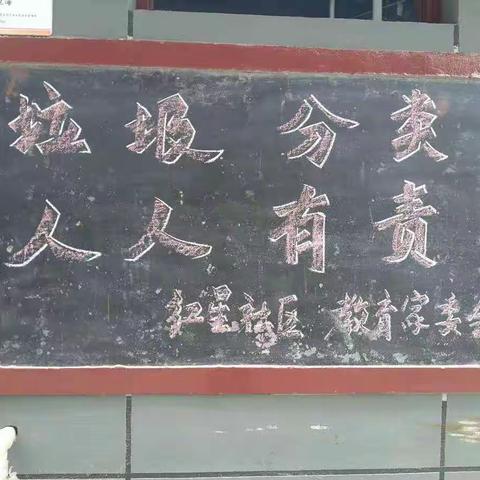 垃圾分类
人人有责
红星社区 教育家委会